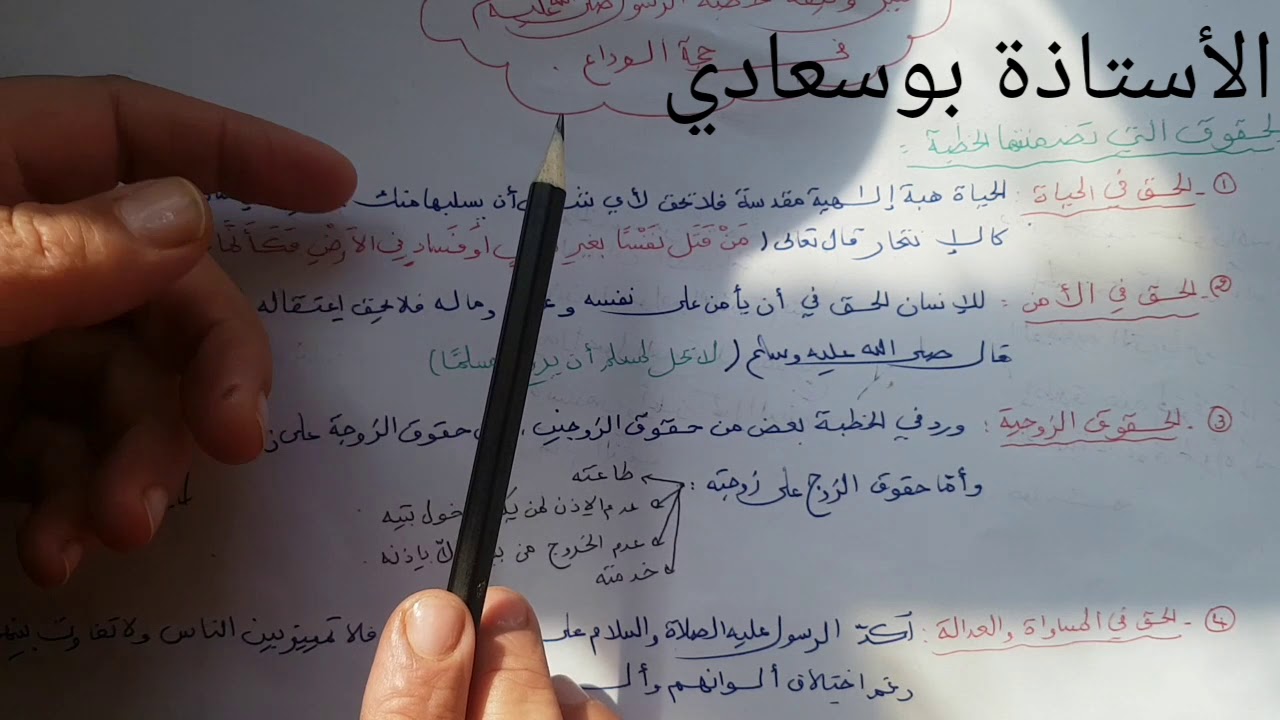 خطبة الرسول صلى الله عليه وسلم
في حجة الوداع.
الأستاذة بوسعادي
الحقوق التي تضمنتها الخطبة:
① - الحق في الحياة: الحياة هبة إلهية مقدسة فلا تحق لأي أن يسلبها منك
كالإنتحار قال تعالى (مَنْ قَتَلَ نَفْسًا بغيرِ أو فَسادٍ في الأرْضِ فَكَأنَّما
② - الحق في الأمن: للإنسان الحق في أن يأمن على نفسه و وماله فلا يحق إعتقاله
قال صلى الله عليه وسلم (لا تحل لمسلم أن مسلمًا)
③ - الحقوق الزوجية: ورد في الخطبة بعض من حقوق الزوجين حقوق الزوجة على
وأما حقوق الزوج على زوجته:
طاعته
عدم الإذن لمن دخول بيته
عدم الخروج من بإذنه
خدمته
④ - الحق في المساواة والعدالة: أكدّ الرسول عليه الصلاة والسلام على فلا تمييز بين الناس ولا تفاوت بينهم
رغم اختلاف ألوانهم